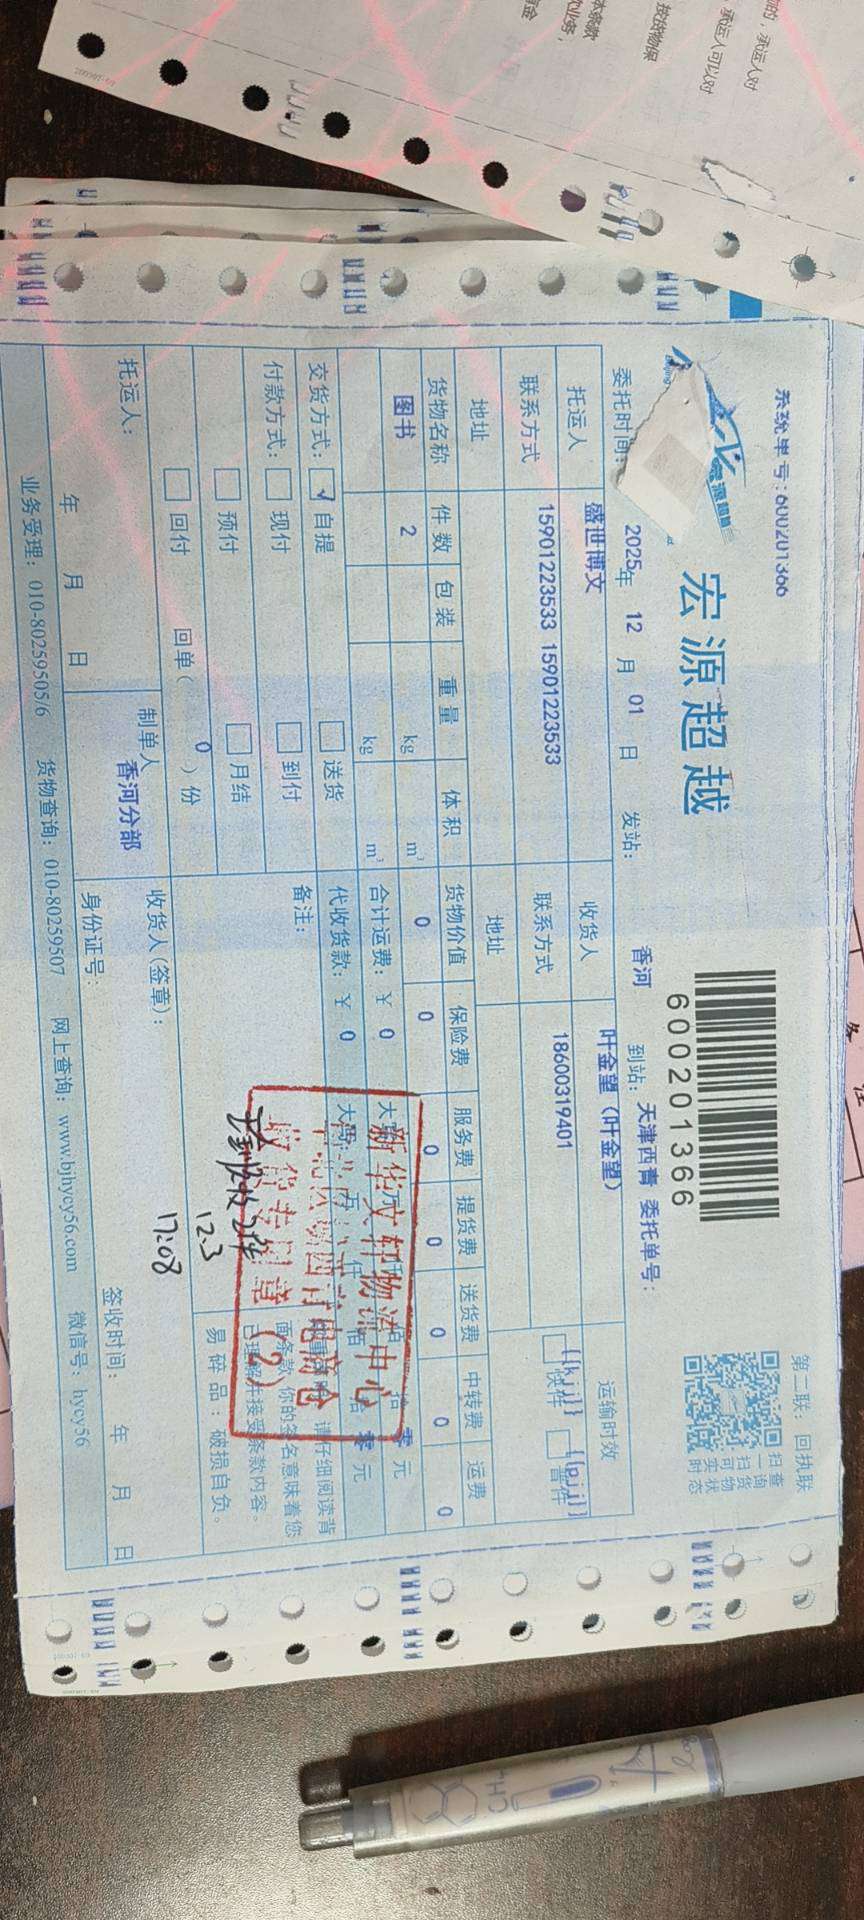 系统单号:600201366
第二联:回执联
宏源超越
源超越
600201366
扫一扫
查询货物实时状态
委托时间: 2025年 12月 01日 发站: 香河 到站: 天津西青 委托单号:
托运人 盛世博文 收货人 叶金望(叶金望) 运输时效
联系方式 15901223533 15901223533 联系方式 18600319401 {{kjj}} 快件 {{pjj}} 普件
地址 地址
货物名称 件数 包装 重量 体积 货物价值 保险费 服务费 提货费 送货费 中转费 运费
图书 2 kg m³ 0 0 0 0 0 0 0
kg m³ 合计运费:¥ 0 拾 零 元
交货方式: √ 自提 送货 代收货款:¥ 0 万 仟 佰 拾 零 元
付款方式: 现付 到付 备注: 请仔细阅读背
预付 月结 面条款,你的签名意味着您
已理解并接受条款内容。
回付 回单( 0 )份 易碎品:破损自负。
新华文轩物流中心
收货专用章
(2)
实到收2件
12.3
17:08
托运人: 制单人 香河分部 收货人(签章):
年 月 日 身份证号: 签收时间: 年 月 日
业务受理:010-80259505/6 货物查询:010-80259507 网上查询:www.bjhycy56.com 微信号:hycy56
承运人对
承运人可以对
CH